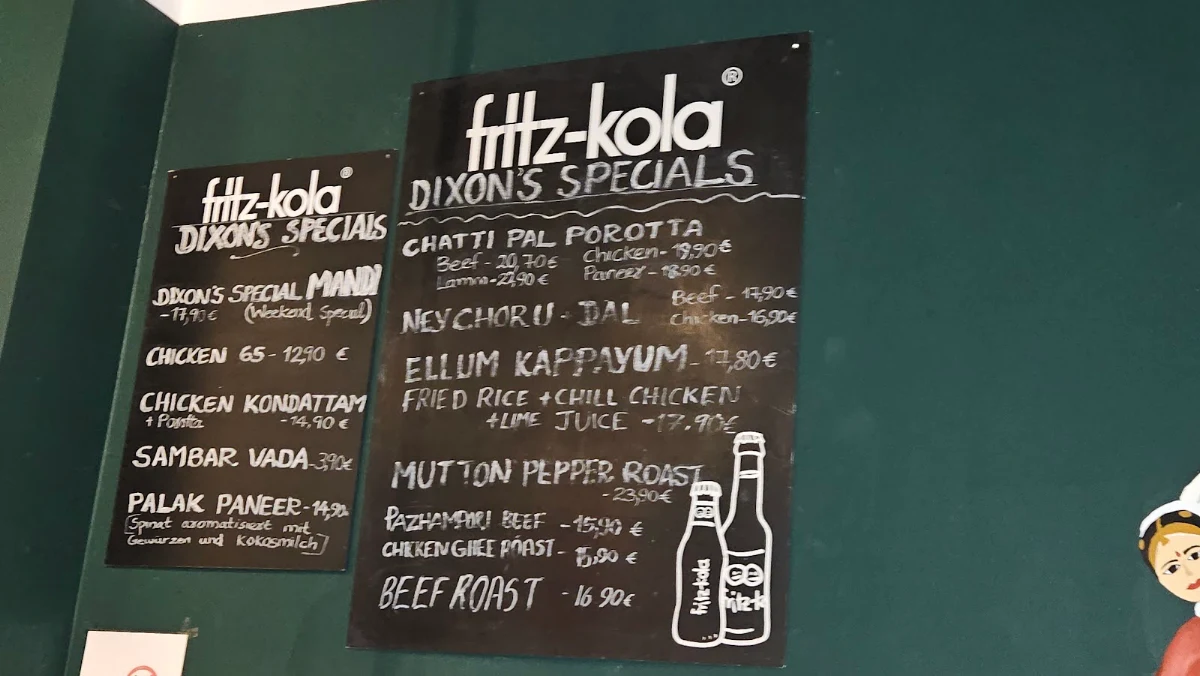 fritz-kola®
DIXON'S SPECIALS
DIXON'S SPECIAL MANDI
-17,90€ (Weekend Special)
CHICKEN 65 - 12,90 €
CHICKEN KONDATTAM
+ Parotta -14,90 €
SAMBAR VADA-3,90€
PALAK PANEER-14,90
[Spinat aromatisiert mit
Gewürzen und Kokosmilch]
fritz-kola®
DIXON'S SPECIALS
CHATTI PAL POROTTA
Beef - 20,70€ Chicken- 18,90€
Lamm- Paneer - 18,90€
NEYCHORU - DAL Beef - 17,90€
Chicken-16,90€
ELLUM KAPPAYUM-17,80€
FRIED RICE +CHILL CHICKEN
+LIME JUICE -17.90€
MUTTON PEPPER ROAST
- 23,90€
PAZHAMPORI BEEF - 15,90 €
CHICKEN GHEE ROAST - 15,90 €
BEEF ROAST - 16 90€
fritz-kola
fritz-k